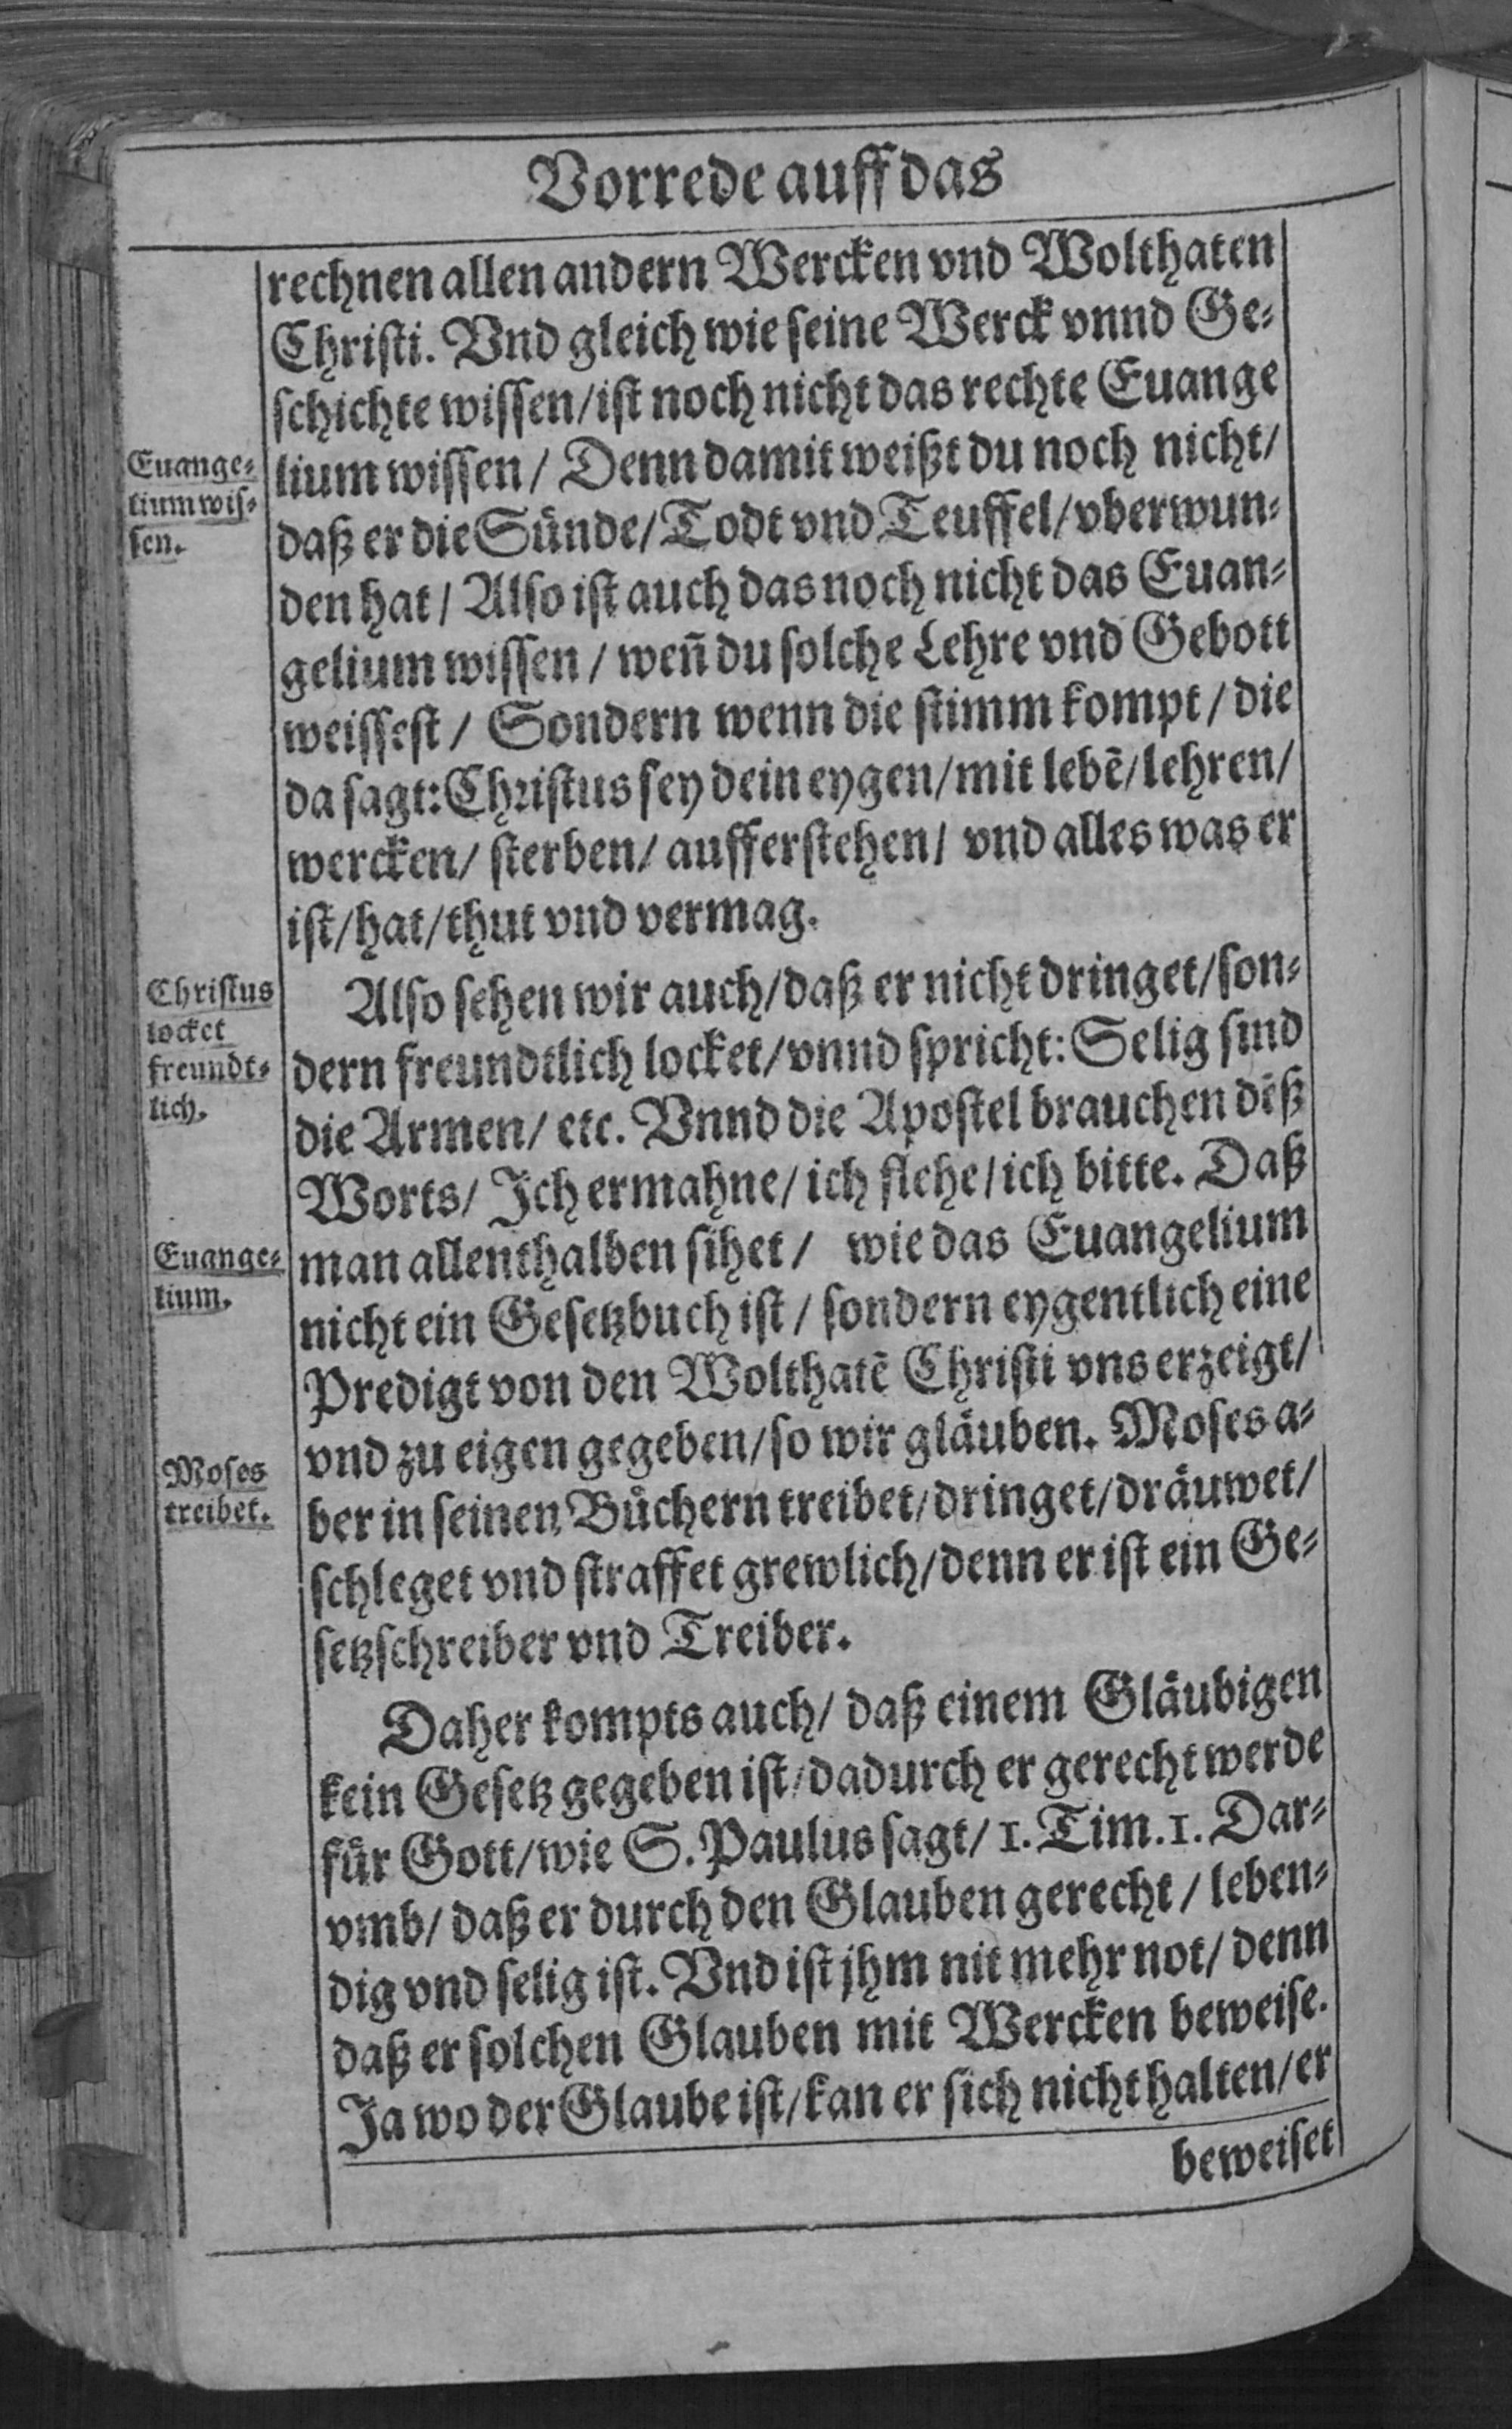 Vorrede auff das
rechnen allen andern Wercken vnd Wolthaten
Christi. Vnd gleich wie seine Werck vnnd Ge-
schichte wissen/ist noch nicht das rechte Euange
Euange-
lium wis-
sen.
lium wissen/ Denn damit weißt du noch nicht/
daß er die Sünde/Todt vnd Teuffel/vberwun-
den hat/ Also ist auch das noch nicht das Euan-
gelium wissen/ weñ du solche Lehre vnd Gebott
weissest/ Sondern wenn die stimm kompt/die
da sagt: Christus sey dein eygen/mit lebẽ/lehren/
wercken/ sterben/ aufferstehen/ vnd alles was er
ist/hat/thut vnd vermag.
Christus
locket
freundt-
lich.
Also sehen wir auch/daß er nicht dringet/son-
dern freundtlich locket/vnnd spricht: Selig sind
die Armen/ etc. Vnnd die Apostel brauchen deß
Worts/ Ich ermahne/ich flehe/ich bitte. Daß
Euange-
lium.
man allenthalben sihet/ wie das Euangelium
nicht ein Gesetzbuch ist/ sondern eygentlich eine
Predigt von den Wolthatẽ Christi vns erzeigt/
vnd zu eigen gegeben/so wir gläuben. Moses a-
Moses
treibet.
ber in seinen Büchern treibet/dringet/dräuwet/
schleget vnd straffet grewlich/denn er ist ein Ge-
setzschreiber vnd Treiber.
Daher kompts auch/ daß einem Gläubigen
kein Gesetz gegeben ist/dadurch er gerecht werde
für Gott/wie S. Paulus sagt/ 1. Tim. 1. Dar-
vmb/ daß er durch den Glauben gerecht/ leben-
dig vnd selig ist. Vnd ist jhm nit mehr not/denn
daß er solchen Glauben mit Wercken beweise.
Ja wo der Glaube ist/kan er sich nicht halten/er
beweiset